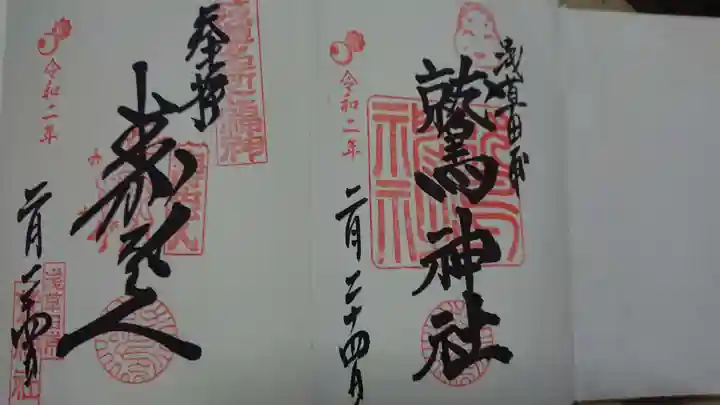 浅草田甫
鷲神社
令和二年
二月二十四日
奉拝
浅草名所七福神
寿老人
令和二年
二月二十四日
浅草田甫